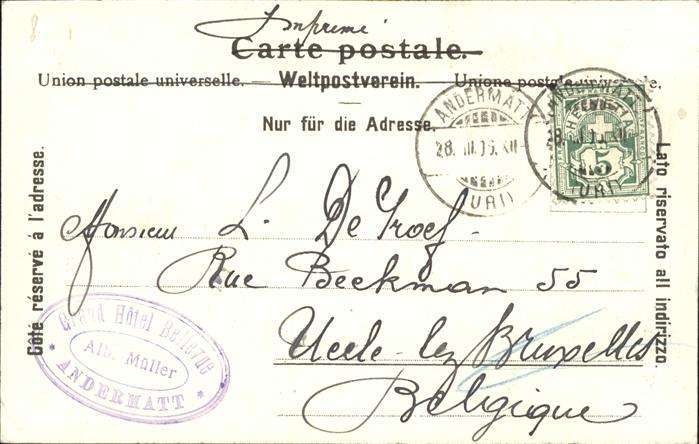 Imprimé
Carte postale.
Union postale universelle. — Weltpostverein. — Unione postale universale.
Nur für die Adresse.
ANDERMATT
28. III. 06. XII
(URI)
ANDERMATT
(URI)
HELVETIA
5
Côté réservé à l'adresse.
Lato riservato all indirizzo.
Monsieur L. De Groef.
Rue Beckman 55
Uccle-lez Bruxelles
Belgique
Grand Hôtel Bellevue
Alb. Müller
* ANDERMATT *